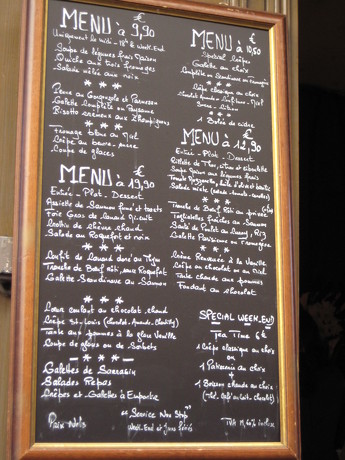 MENU à 9,90 €
Uniquement le midi - 18h & Week-End
Soupe de légumes frais Maison
Quiche aux trois fromages
Salade mêlée aux noix
* * *
Penne au Gorgonzola et Parmesan
Galette Complète ou Paysanne
Risotto crémeux aux Champignons
* * *
Fromage blanc au Miel
Crêpe au beurre-sucre
Coupe de glaces
MENU à 19,90 €
Entrée - Plat - Dessert
Assiette de Saumon fumé et toasts
Foie Gras de Canard
chèvre chaud
Salade au Roquefort et noix
* * *
Confit de Canard doré au Thym
Tranche de Bœuf Rôti, sauce Roquefort
Galette Scandinave au Saumon
* * *
Cœur coulant au chocolat chaud
Crêpe St Louis (Chocolat, Amande, Chantilly)
Tarte aux pommes à la glace Vanille
Coupe de glaces ou de Sorbets
- * * * -
Galettes de Sarrasin
Salades Repas
Crêpes et Galettes à Emporter
Prix Nets
"Service Non Stop"
Week-End et Jours Fériés
MENU à 10,50 €
Spécial Crêpes
Galette au choix
Complète ou Scandinave ou Fromagère
*
Crêpe classique au choix
Chocolat, Confiture, Miel
Sucre - Citron
*
1 Bolée de cidre
MENU à 12,90 €
Entrée - Plat - Dessert
Rillette de Thon, citron et ciboulette
Soupe Maison aux légumes frais
Tomate Mozzarella, huile d'olive et basilic
Salade mixte (salade-tomate-carottes)
* * *
Tranche de Bœuf Rôti au poivre
Tagliatelles fraîches au Saumon
Sauté de Poulet au Curry, Riz
Galette Parisienne ou Fromagère
* * *
Crème Renversée à la Vanille
Crêpe au chocolat ou au Miel
Tarte chaude aux pommes
Fondant au chocolat
SPECIAL WEEK-END
Tea Time 6€
1 Crêpe classique au choix
ou
1 Patisserie au choix
+
1 Boisson chaude au choix
(Thé, Café au lait, chocolat)